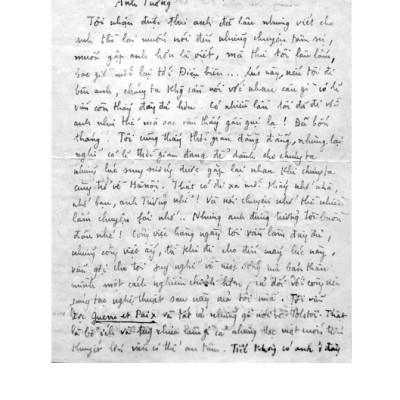 Anh Tưởng
Tôi nhận được thư anh đã lâu nhưng viết cho
anh thì lại muốn nói đến những chuyện tâm sự,
muốn gặp anh hơn là viết, mà thư tôi lâu lắm,
bao giờ mới lại tới Điện biên... Lúc này, nếu tôi ở
bên anh, chúng ta khó cần nói với nhau cái gì có lẽ
vẫn còn thấy đầy đủ hơn. Có nhiều lần tôi đã đi với
anh như thế mà sao vẫn thấy gần gụi lạ! Đã bốn
tháng. Tôi cũng thấy thời gian đằng đẵng, nhưng lại
nghĩ có lẽ thời gian đang để dành cho chúng ta
những lúc sung sướng được gặp lại nhau. Khi chúng ta
cùng trở về Hà nội. Thật có đi xa mới thấy nhớ nhà,
nhớ bạn, anh Tưởng nhỉ! Và nói chuyện nhớ thì nhiều
lắm chuyện phải nhớ.. Nhưng anh đừng tưởng tôi buồn
đâu nhé! Công việc hàng ngày tôi vẫn làm đầy đủ,
những công việc ấy, từ khi đi cho đến mấy lúc này,
vẫn gợi cho tôi suy nghĩ về cuộc sống mà bản thân
mình một cách nghiêm chỉnh hơn, cả đối với công việc
sáng tác nghệ thuật sau này của tôi nữa. Tôi vẫn
đọc Guerre et Paix và tất cả những gì nói về Tolstoi. Thật
là bổ ích và tuy nhiên cũng có những đọc một cuốn tiểu
thuyết lớn vẫn có thể an tâm. Tiếc không có anh ở đây